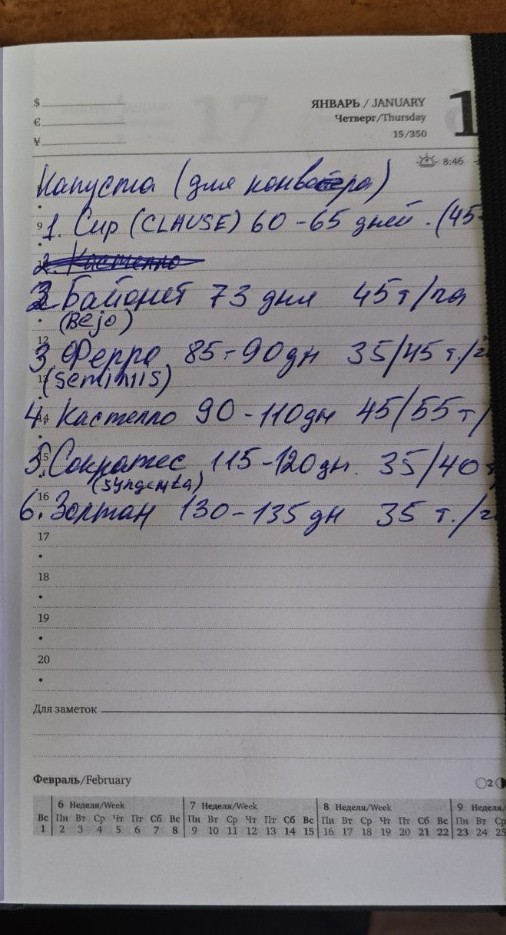 $
€
¥
ЯНВАРЬ / JANUARY
Четверг/Thursday
15/350
1
8:46
Капуста (для конвейера)
9 1. Сир (CLAUSE) 60-65 дней. (45
2. Кастелло
2 Байонет 73 дня 45 т/га
(Bejo)
12
3 Ферро 85-90 дн 35/45 т./г
13
(Seminis)
4. Кастелло 90-110 дн 45/55 т/
15
5. Сократес 115-120 дн. 35/40
(Syngenta)
16
6. Золтан 130-135 дн 35 т./г
17
18
19
20
Для заметок
Февраль/February
2
6 Неделя/Week 7 Неделя/Week 8 Неделя/Week 9 Неделя/
Вс Пн Вт Ср Чт Пт Сб Вс Пн Вт Ср Чт Пт Сб Вс Пн Вт Ср Чт Пт Сб Вс Пн Вт Ср
1 2 3 4 5 6 7 8 9 10 11 12 13 14 15 16 17 18 19 20 21 22 23 24 25